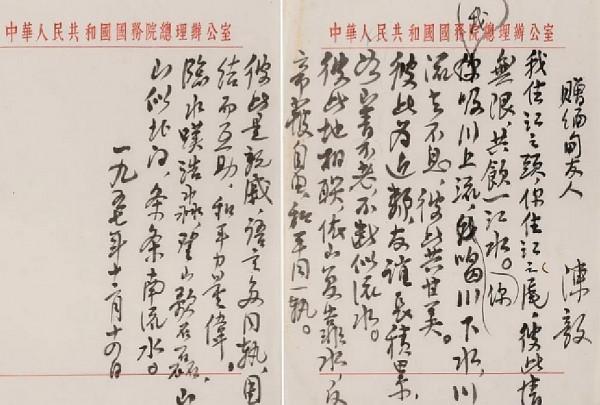 中華人民共和國國務院總理辦公室
贈缅甸友人 陳毅
我住江之頭，你住江之尾，彼此情
無限，共飲一江水。你
我
你吸川上流，我喝川下水，川
流去不息，彼此共甘美。
彼此为近鄰，友誼長積累，
如山青不老，不断似流水。
彼此地相联，依山复靠水，反
帝自由，和平同一軌。
中華人民共和國國務院總理辦公室
彼此是親戚，語言多同軌，團
結而互助，和平力量偉。
臨水嘆浩淼，登山歌石磊，山
山似北向，条条南流水。
一九五七年十二月十四日